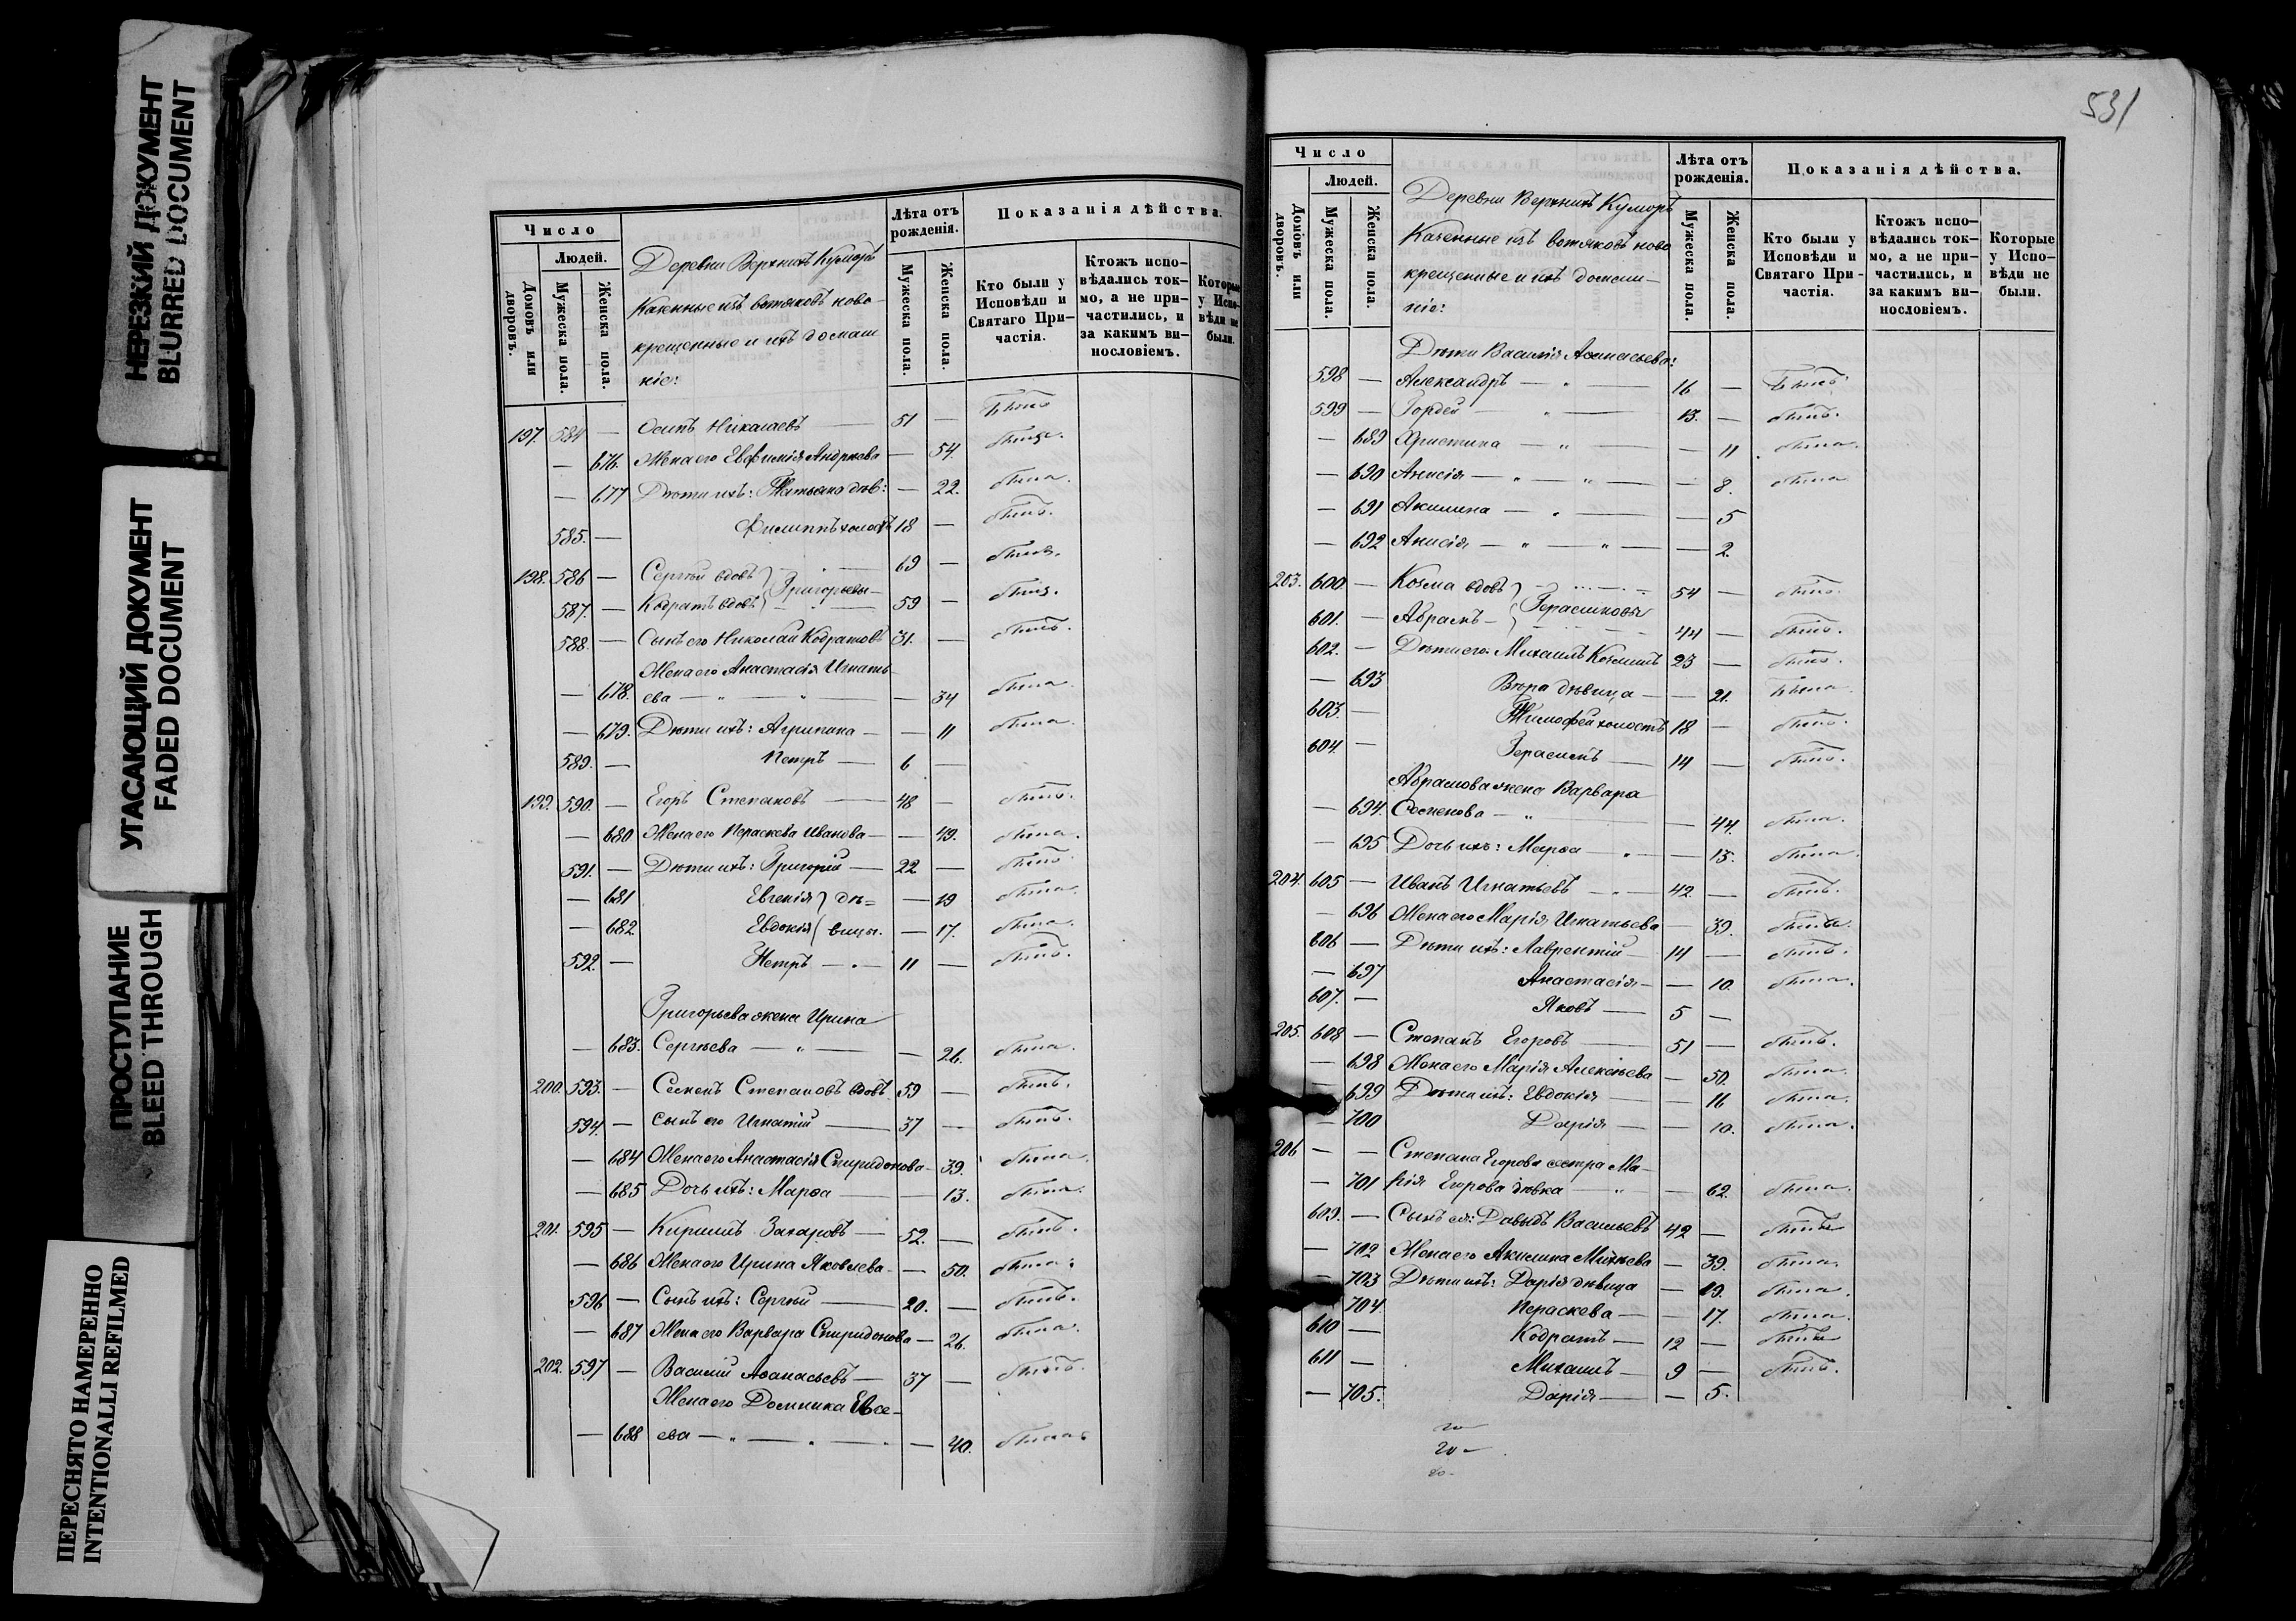 НЕРЕЗКИЙ ДОКУМЕНТ
BLURRED DOCUMENT
УГАСАЮЩИЙ ДОКУМЕНТ
FADED DOCUMENT
ПРОСТУПАНИЕ
BLEED THROUGH
ПЕРЕСНЯТО НАМЕРЕННО
INTENTIONALLI REFILMED
Число
Людей.
Домовъ или дворовъ.
Мужеска пола.
Женска пола.
Деревни Верхнихъ Кумаръ
Казенные изъ вотяковъ ново-
крещенные и ихъ домаш
ніе:
Лѣта отъ рожденія.
Мужеска пола.
Женска пола.
Показанія дѣйства.
Кто были у Исповѣди и Святаго При-частія.
Ктожъ испо-вѣдались ток-мо, а не при-частились, и за какимъ ви-нословіемъ.
Которые у Испо-вѣди не были.
197. 584 — Осипъ Николаевъ — 51 — былъ
— 676. Жена его Евфимія Андреева — 54. была.
— 677 Дѣти ихъ: Татьяна дѣв: — 22. была.
585. — Филиппъ холостъ 18 — былъ.
198. 586 — Сергѣй вдовъ } Григорьевы 69 — былъ.
587. — Кодратъ вдовъ 59 — былъ.
588. — Сынъ его Николай Кодратовъ 31. — былъ.
Жена его Анастасія Игнать-
— 678. ева — " — " — 34 была.
— 679. Дѣти ихъ: Агрипина — — 11 была.
589. — Петръ — 6 —
199. 590. — Егоръ Степановъ — 48 — былъ.
— 680 Жена его Пераскева Иванова — — 49. была.
591. — Дѣти ихъ: Григорій — 22 — былъ.
— 681 Евгенія } дѣ= — 19 была.
— 682. Евдокія } вицы. — 17. была.
592. — Петръ — " — 11 — былъ.
Григорьева жена Ирина
— 683. Сергѣева — " — — 26. была.
200. 593. — Семенъ Степановъ вдовъ 59 — былъ.
594. — Сынъ его Игнатій — 37 — былъ.
— 684 Жена его Анастасія Спиридонова — 39. была.
— 685 Дочь ихъ: Марѳа — — 13. была.
201. 595 — Кирилъ Захаровъ — 52. — былъ.
— 686 Жена его Ирина Яковлева — — 50. была.
596 — Сынъ ихъ: Сергѣй — 20. — былъ.
— 687 Жена его Варвара Спиридонова — 26. была.
202. 597 — Василій Аѳанасьевъ — 37 — былъ.
Жена его Домника Евсе-
— 688 ева — " — " — — 40. была
531
Число
Людей.
Домовъ или дворовъ.
Мужеска пола.
Женска пола.
Деревни Верхнихъ Кумаръ
Казенные изъ вотяковъ ново
крещенные и ихъ домаш-
ніе:
Лѣта отъ рожденія.
Мужеска пола.
Женска пола.
Показанія дѣйства.
Кто были у Исповѣди и Святаго При-частія.
Ктожъ испо-вѣдались ток-мо, а не при-частились, и за какимъ ви-нословіемъ.
Которые у Испо-вѣди не были.
Дѣти Василія Аѳанасьева:
598 — Александръ — " — 16 — былъ
599 — Гордей — " — 13. — былъ.
— 689 Христина — " — — 11 была.
— 690 Анисія — " — " — — 8. была
— 691 Акилина — " — — 5
— 692 Анисія — " — " — — 2.
203. 600. — Козма вдовъ } Герасимовы 54 — былъ.
601. — Абрамъ — 44 — былъ.
602. — Дѣти его: Михаилъ Козминъ 23 — былъ.
— 693 Вѣра дѣвица — — 21. была.
603. — Тимофей холостъ 18 — былъ.
604. — Герасимъ — 14 — былъ.
Абрамова жена Варвара
— 694. Семенова — " — — 44. была.
— 695 Дочь ихъ: Марѳа — " — — 15. была.
204. 605 — Иванъ Игнатьевъ — " — 42 — былъ.
— 696 Жена его Марія Игнатьева — 39. была.
606 — Дѣти ихъ: Лаврентій — 14 — былъ.
— 697 Анастасія — — 10. была.
607. — Яковъ — 5 —
205. 608 — Степанъ Егоровъ — 51 — былъ.
— 698 Жена его Марія Алексѣева — 50. была.
— 699 Дѣти ихъ: Евдокія — — 16 была.
— 700 Дарія — — 10. была.
206 — — Степана Егорова сестра Ма-
— 701 рія Егорова дѣвка — " — — 62. была.
609. — Сынъ ея: Давыдъ Васильевъ 42 — былъ
— 702 Жена его Акилина Михѣева — 39. была.
703 Дѣти ихъ: Дарія дѣвица — 19. была.
704 Пераскева — — 17. была.
610 — Кодратъ — 12 — былъ
611 — Михаилъ — 9 — былъ.
— 705. Дарія — — 5.
20 —